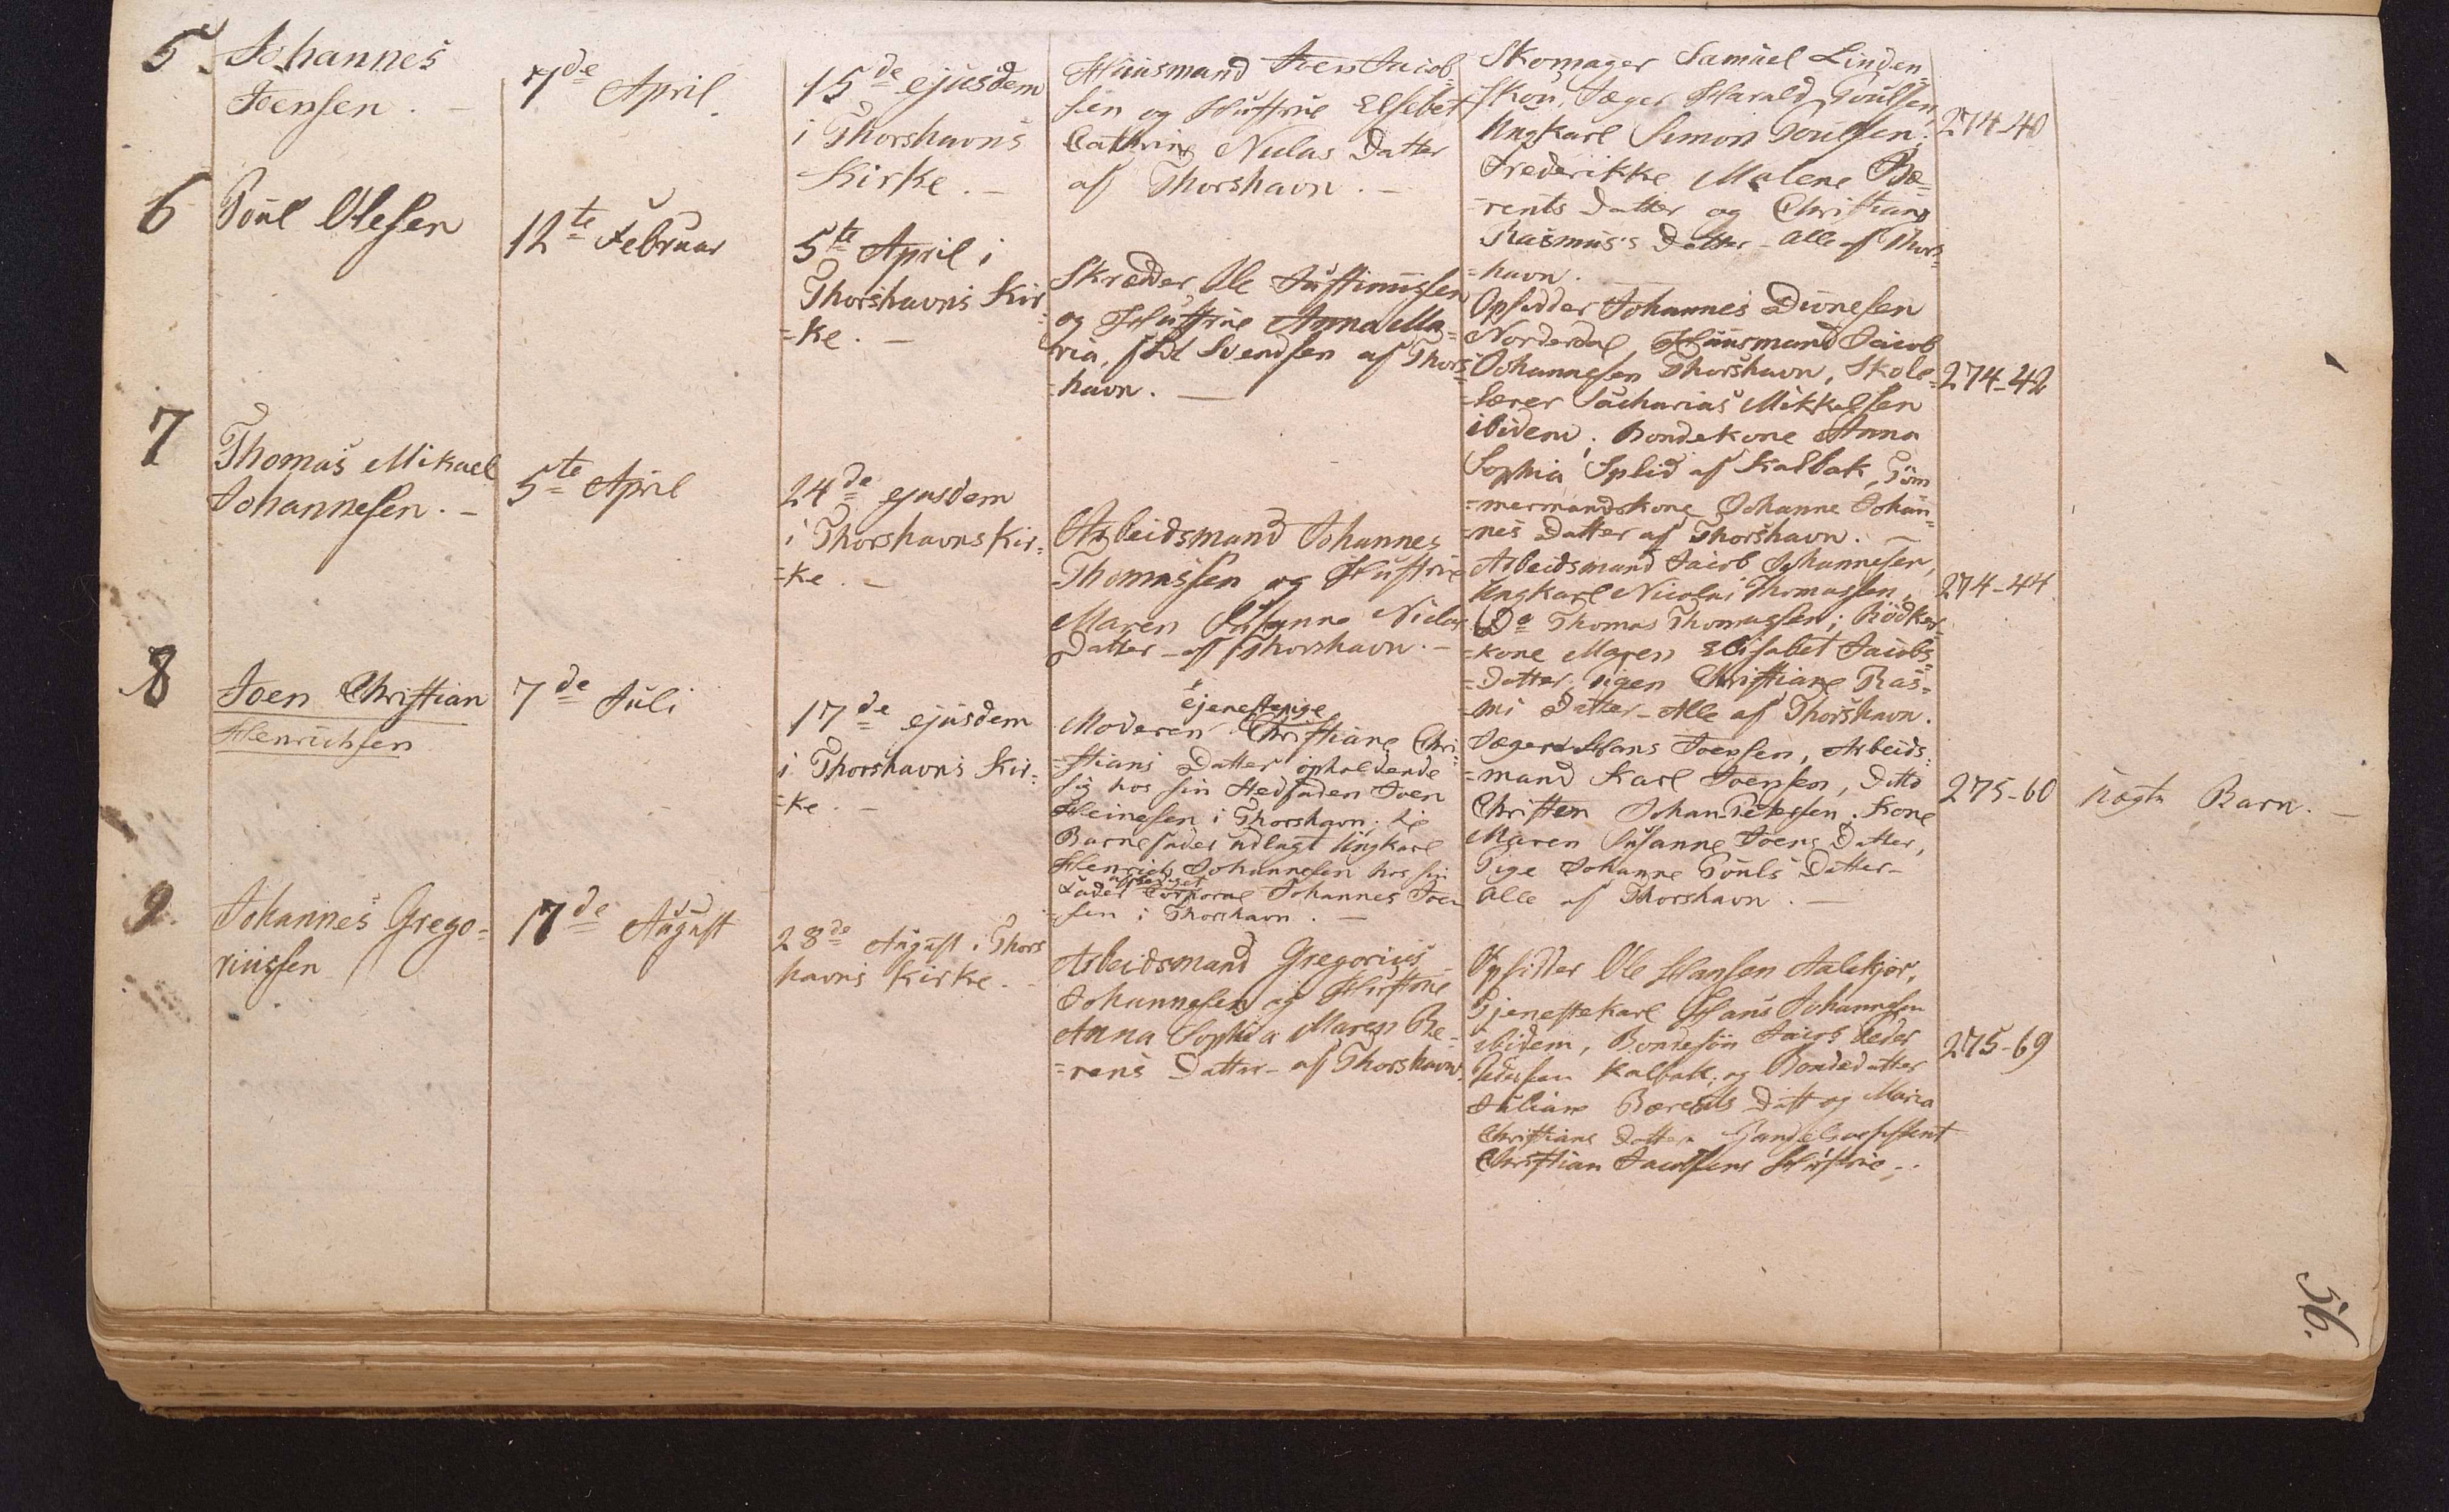 5. Johannes
Joensen. -
7de April.
15de ejusdem
i Thorshavns
Kirke. -
Huusmand Joen Jacob-
sen og Hustrue Elsebet
Cathrine Niclas Datter
af Thorshavn. -
Skomager Samuel Linden-
skou, Jæger Harald Poulsen,
Ungkarl Simon Poulsen;
Frederikke Malene Bæ-
=rents Datter og Christiane
Rasmus's Datter - alle af Thors-
=havn.
274-40
6 Poul Olesen
12te Februar
5te April i
Thorshavns Kir-
=ke. -
Skrædder Ole Justinussen
og Hustrue Anna Ma-
ria, fød Svendsen af Thors-
=havn. -
Opsidder Johannes Dionesen
Norderdal, Huusmand Jacob
Johannesen Thorshavn, Skole-
=lærer Sacharias Mikkelsen
ibidem; Bondekone Anna
Sophia Splid af Kalbak, Töm
=mermandskone Johanne Johan-
=nes Datter af Thorshavn. -
274-42
7 Thomas Mikael
Johannesen. -
5te April
24de ejusdem
i Thorshavns Kir-
=ke. -
Arbeidsmand Johannes
Thomassen og Hustrue
Maren Susanne Niclas
Datter - af Thorshavn. -
Arbeidsmand Jacob Johannesen,
Ungkarl Nicolai Thomassen,
Do Thomas Thomassen; Bödker-
=kone Maren Elisabet Jacobs-
=Datter, Pigen Christiane Ras-
=mi Datter - Alle af Thorshavn.
274-44
8 Joen Christian
Henrichsen
7de Juli
17de ejusdem
i Thorshavns Kir-
=ke. -
Tjenestepige
Moderen Christiane Chri-
=stians Datter opholdende
sig hos sin Stedfader Joen
Heinesen i Thorshavn; til
Barnefader udlagt Ungkarl
Henrich Johannesen hos sin
afskediget
Fader Corporal Johannes Joen-
=sen i Thorshavn. -
Jæger Hans Joensen, Arbeids-
=mand Karl Joensen, Ditto
Christen Johan Petersen. Kone
Maren Susanne Joens Datter,
Pige Johanne Pouls Datter -
alle af Thorshavn. -
275-60
Uægte Barn. -
9. Johannes Grego-
riussen
17de August
28de August i Thors
havns Kirke. -
Arbeidsmand Gregorius
Johannesen og Hustrue
Anna Sophia Maren Be-
=rens Datter - af Thorshavn.
Opsidder Ole Hansen Aalekjær,
Tjenestekarl Hans Johannesen
ibidem, Bondesön Jacob Peder
Pedersen Kalbak; og Bondedatter
Juliane Bærents Datt og Maria
Christians Datter Handelsassistent
Christian Jacobsens Hustrue. -
275-69
56.